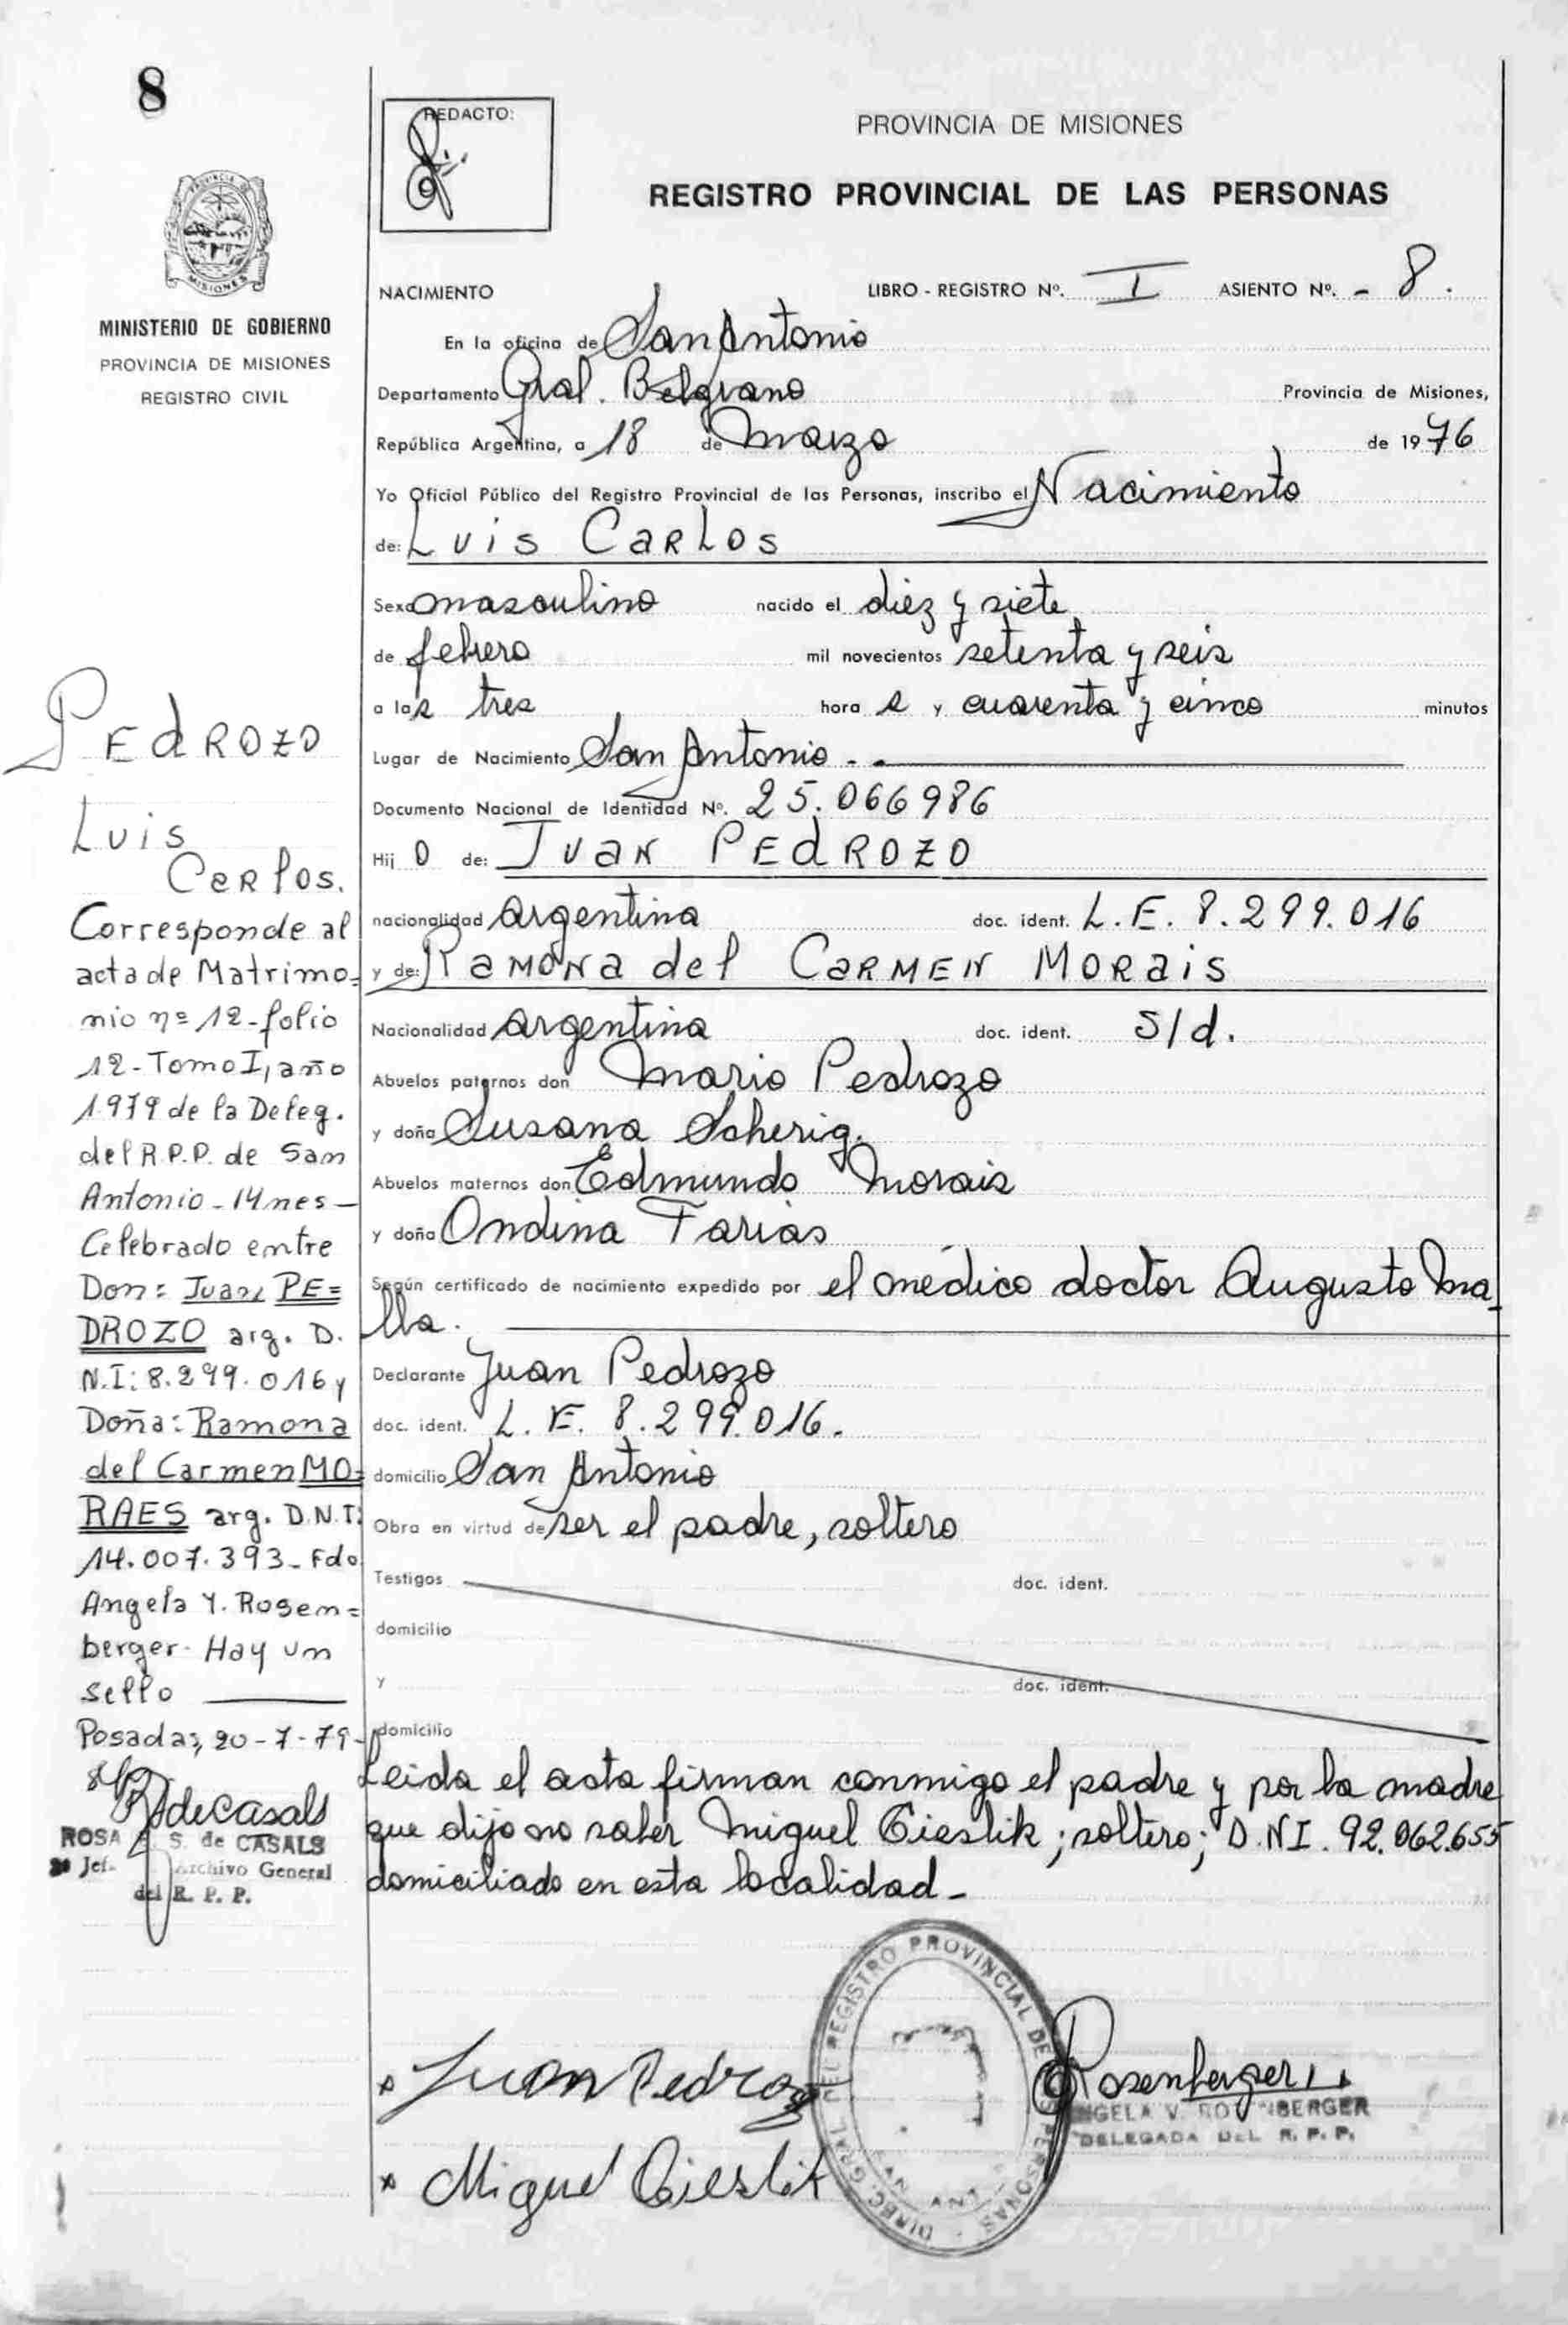 8
MINISTERIO DE GOBIERNO
PROVINCIA DE MISIONES
REGISTRO CIVIL
PEdROZO
Luis
CaRlos.
Corresponde al
acta de Matrimo=
nio nº 12-folio
12-Tomo I, año
1979 de la Deleg.
del R.P.P. de San
Antonio-14nes-
Celebrado entre
Don: Juan PE=
DROZO arg. D.
N.I: 8.299.016 y
Doña: Ramona
del Carmen MO=
RAES arg. D.N.I:
14.007.393-Fdo
Angela Y. Rosem=
berger- Hay un
sello
Posadas, 20-7-79-
deCasals
ROSA S. de CASALS
Jef. Archivo General
del R. P. P.
REDACTO:
PROVINCIA DE MISIONES
REGISTRO PROVINCIAL DE LAS PERSONAS
NACIMIENTO LIBRO - REGISTRO Nº. I ASIENTO Nº. - 8.
En la oficina de San Antonio
Departamento Gral. Belgrano Provincia de Misiones,
República Argentina, a 18 de Marzo de 1976
Yo Oficial Público del Registro Provincial de las Personas, inscribo el Nacimiento
de: Luis CaRLos
Sexo masculino nacido el diez y siete
de febrero mil novecientos setenta y seis
a las tres hora s y cuarenta y cinco minutos
Lugar de Nacimiento San Antonio - .
Documento Nacional de Identidad Nº. 25.066986
Hij o de: JUaN PEdROZO
nacionalidad argentina doc. ident. L.E. 8.299.016
y de: RaMONa del CaRMEN MORais
Nacionalidad argentina doc. ident. s/d.
Abuelos paternos don Mario Pedrozo
y doña Susana Scherig.
Abuelos maternos don Edmundo Morais
y doña Ondina Farias
Según certificado de nacimiento expedido por el médico doctor Augusto Ma-
lla.
Declarante Juan Pedrozo
doc. ident. L.E. 8.299.016.
domicilio San Antonio
Obra en virtud de ser el padre, soltero
Testigos doc. ident.
domicilio
y doc. ident.
domicilio
Leida el acta firman conmigo el padre y por la madre
que dijo no saber Miguel Cieslik; soltero; D.N.I. 92.062.655
domiciliado en esta localidad-
x Juan Pedrozo
x Miguel Cieslik
DIREC. GRAL. DEL REGISTRO PROVINCIAL DE LAS PERSONAS
Rosenberger
ANGELA V. ROSENBERGER
DELEGADA DEL R. P. P.